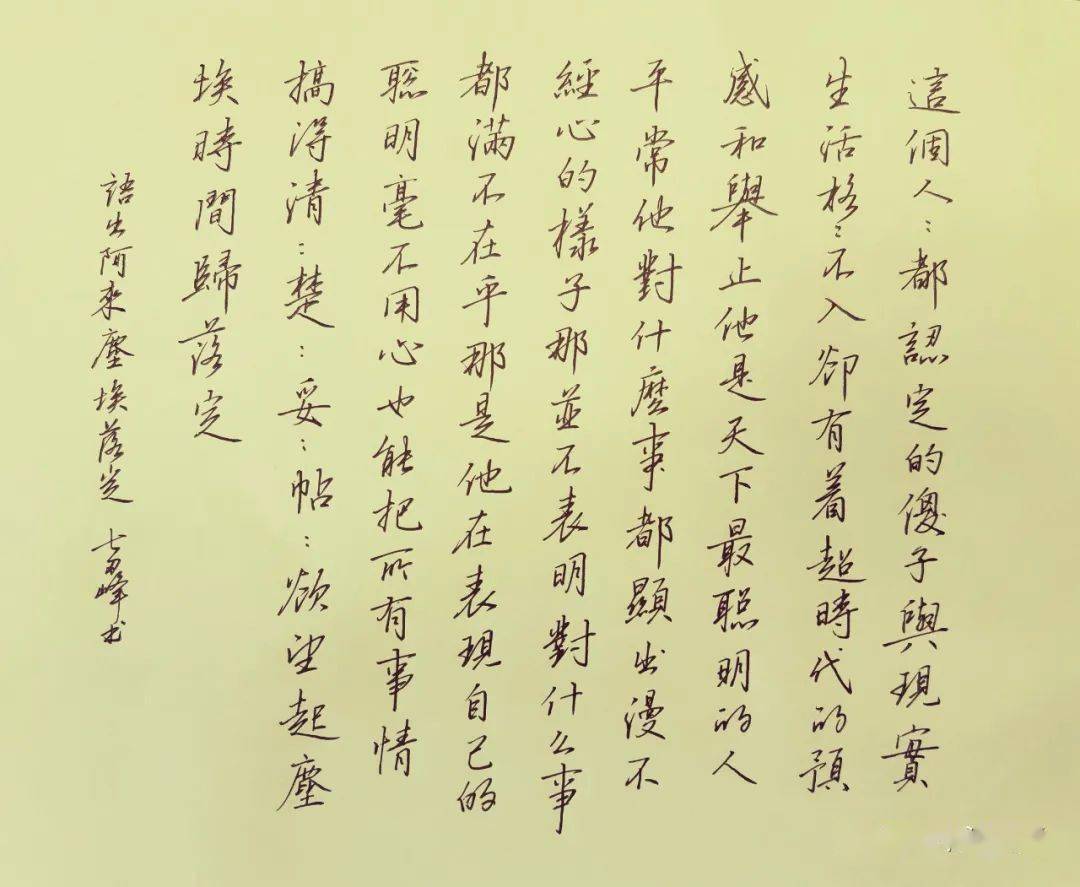 這個人：都認定的傻子與現實
生活格：不入卻有着超時代的預
感和舉止他是天下最聰明的人
平常他對什麼事都顯出漫不
經心的樣子那並不表明對什么事
都滿不在乎那是他在表現自己的
聰明毫不用心也能把所有事情
搞得清：楚：妥：帖：欲望起塵
埃時間歸落定
語出阿來塵埃落定 峰书